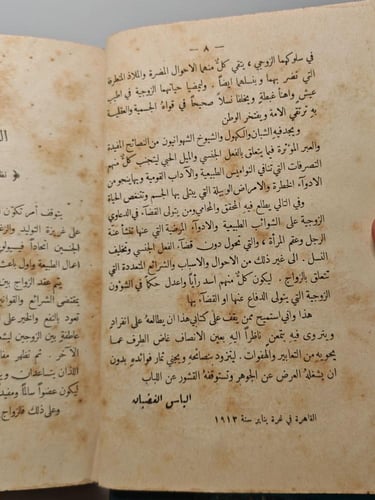 — ٨ —
في سلوكهما الزوجي ، يتقي كلٌّ منهما الاحوال المضرة والملاذ المتطرفة
التي تضر بهما وبنسلهما ايضاً . وليمضيا حياتهما الزوجية في اطيب
عيش واهنأ غبطة ويخلفا نسلاً صحيحاً في قواهُ الجسمية والعقلية
به ترتقي الامة ويفتخر الوطن
ويجد فيه الشبان والكهول والشيوخ الشهوانيون من النصائح المفيدة
والعبر المؤثرة فيما يتعلق بالفعل الجنسي والميل الحبي ليتجنب كلٌّ منهم
التصرفات التي تنافي النواميس الطبيعية والآداب القومية وبها ينجو من
الادواء الخطرة والامراض الوبيلة التي يبتلى بها الجسم وتنغص الحياة
وفي التالي يطلع فيه المحقق والمحامي ومن يتولى القضاء، في الدعاوي
الزوجية على الشوائب الطبيعية والادواء المرضية التي عنها تنشأ عنة
الرجل وعقم المرأة ، والتي تحول دون قضاء الفعل الجنسي وتخليف
النسل . الى غير ذلك من الاحوال والاسباب والشرائع المتعددة التي
تتعلق بالزواج . ليكون كلٌّ منهم اسد رأياً واعدل حكماً في الشؤون
الزوجية التي يتولى الدفاع عنها او القضاء بها
هذا واني استميح ممن يقف على كتابي هذا ان يطالعه على انفراد
ويتروى فيه بتمعن ناظراً اليه بعين الانصاف غاض الطرف عما
يحويه من التعابير والهفوات . ليتزود بنصائحه ويجني ثمار فوائده بدون
ان يشغله العرض عن الجوهر وتستوقفه القشور عن اللباب
الياس الغضبان
القاهرة في غرة يناير سنة ١٩١٣
يتوقف امر تكوّن
على غريزة التوليد
الجنسين اتحاداً فسيولو
اعمال الطبيعة واول باعث
يتم عقد الزواج بين
بمقتضى الشرائع والقوانين
تعود بالنفع والخير على
عاطفة بين الزوجين
الآخر . ثم تطور
اللذان يتساعدان
ليكون عضواً سالماً ومفيد
وعلى ذلك فالزواج